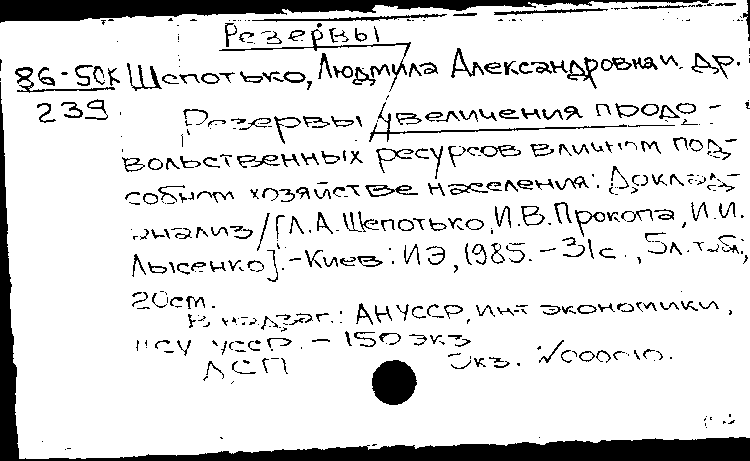 Резервы
86-50к Шепотько, Людмила Александровна и др.
239
Резервы увеличения продо-
вольственных ресурсов в личном под-
собном хозяйстве населения: Доклад-
анализ / [Л.А. Шепотько, И.В. Прокопа, И.И.
Лысенко]. - Киев: ИЭ, 1985. - 31с., 5л. табл;
20см.
В надзаг.: АН УССР, ин-т экономики,
УССР. - 150 экз
ДСП Экз. №000010.